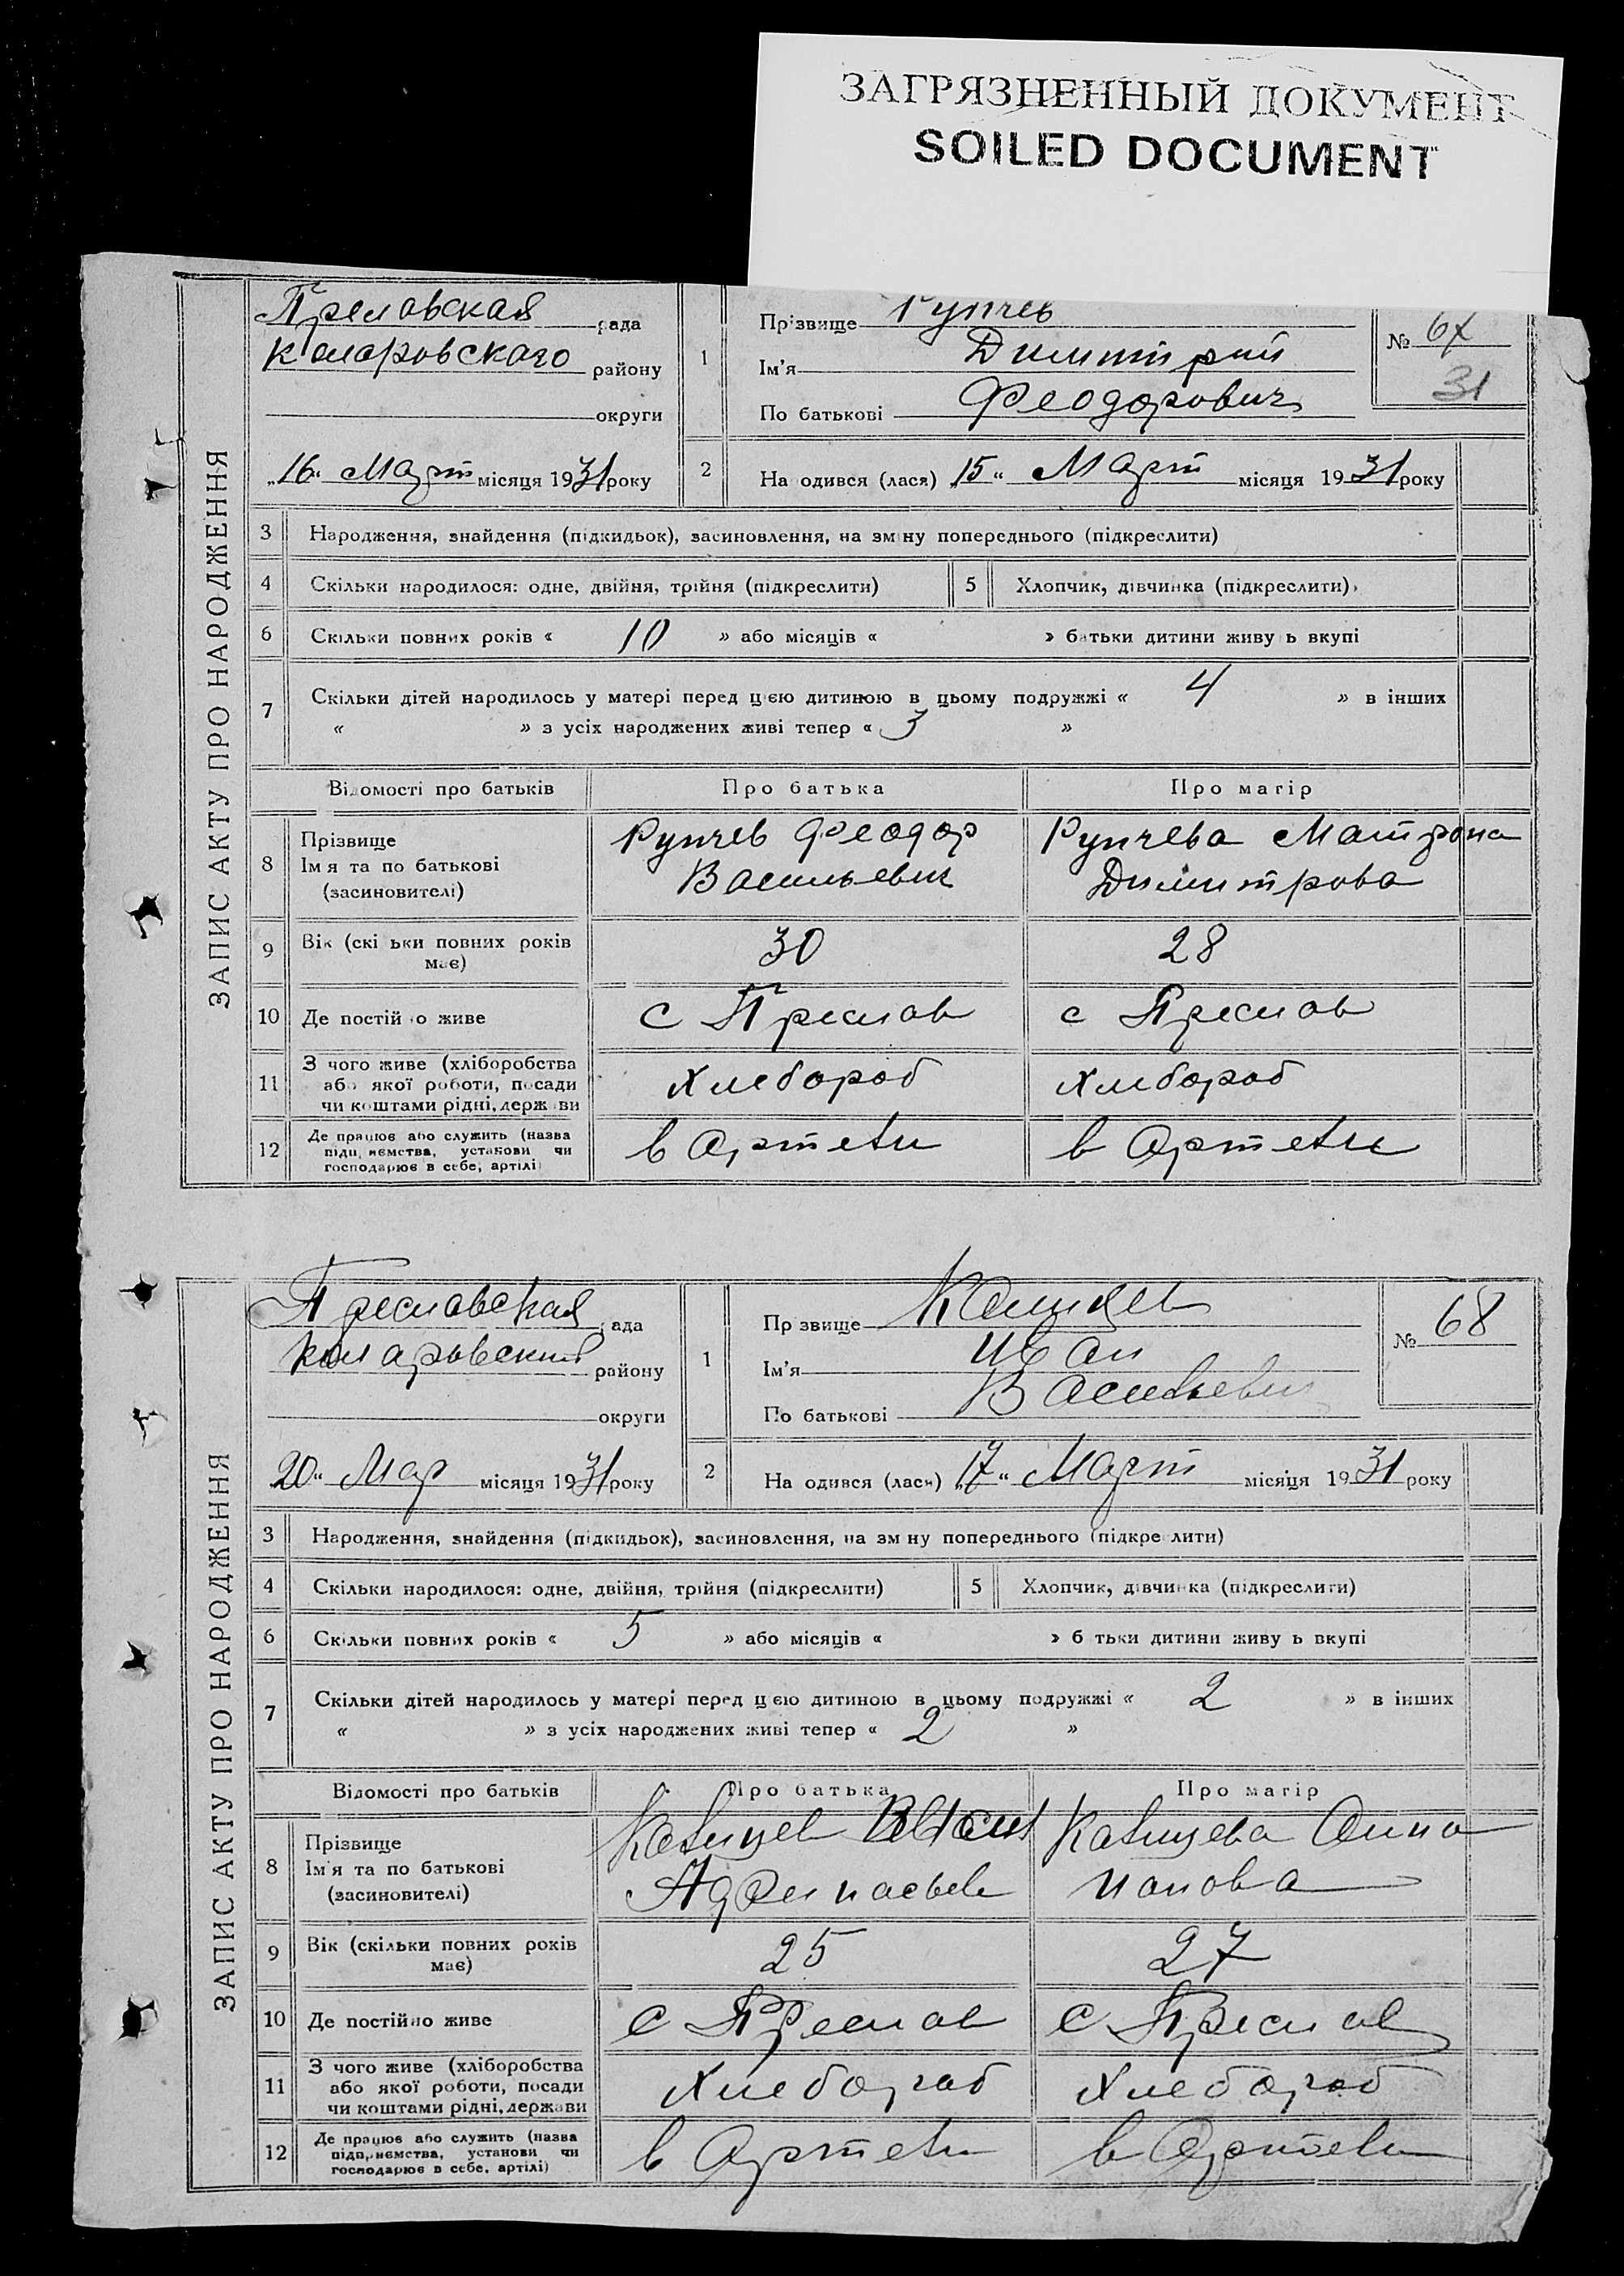 ЗАГРЯЗНЕННЫЙ ДОКУМЕНТ
SOILED DOCUMENT
ЗАПИС АКТУ ПРО НАРОДЖЕННЯ
Преславская рада
Коларовскаго району
округи
„16“ Март місяця 1931 року
1 Прізвище Рупчев
Ім'я Димитрий
По батькові Феодорович
№ 67
31
2 На одився (лася) „15“ Март місяця 1931 року
3 Народження, знайдення (підкидьок), засиновлення, на зм ну попереднього (підкреслити)
4 Скільки народилося: одне, двійня, трійня (підкреслити) 5 Хлопчик, дівчинка (підкреслити)
6 Скільки повних років « 10 » або місяців « » батьки дитини живу ь вкупі
7 Скільки дітей народилось у матері перед цією дитиною в цьому подружжі « 4 » в інших
« » з усіх народжених живі тепер « 3 »
Відомості про батьків Про батька Про матір
8 Прізвище Ім я та по батькові (засиновителі)
Рупчев Феодор Васильевич
Рупчева Матрона Димитрова
9 Вік (скі ьки повних років має) 30 28
10 Де постій о живе с Преслав с Преслав
11 З чого живе (хліборобства або якої роботи, посади чи коштами рідні, держ ви Хлебороб Хлебороб
12 Де працює або служить (назва підп, иємства, установи чи господарює в себе, артілі) в Артели в Артели
ЗАПИС АКТУ ПРО НАРОДЖЕННЯ
Преславская ада
Коларовский району
округи
20“ Мар місяця 1931 року
1 Пр звище
Ім'я Иван
По батькові Васильевич
№ 68
2 На одився (лася) „ “ Март місяця 1931 року
3 Народження, знайдення (підкидьок), засиновлення, на зм ну попереднього (підкре лити)
4 Скільки народилося: одне, двійня, трійня (підкреслити) 5 Хлопчик, дівчинка (підкреслити)
6 Скільки повних років « 5 » або місяців « » б тьки дитини живу ь вкупі
7 Скільки дітей народилось у матері перед цією дитиною в цьому подружжі « 2 » в інших
« » з усіх народжених живі тепер « 2 »
Відомості про батьків Про батька Про матір
8 Прізвище Ім'я та по батькові (засиновителі)
Анна
9 Вік (скільки повних років має) 25 27
10 Де постійно живе с Преслав с Преслав
11 З чого живе (хліборобства або якої роботи, посади чи коштами рідні, держави Хлебороб Хлебороб
12 Де працює або служить (назва підприємства, установи чи господарює в себе, артілі) в Артели в Артели